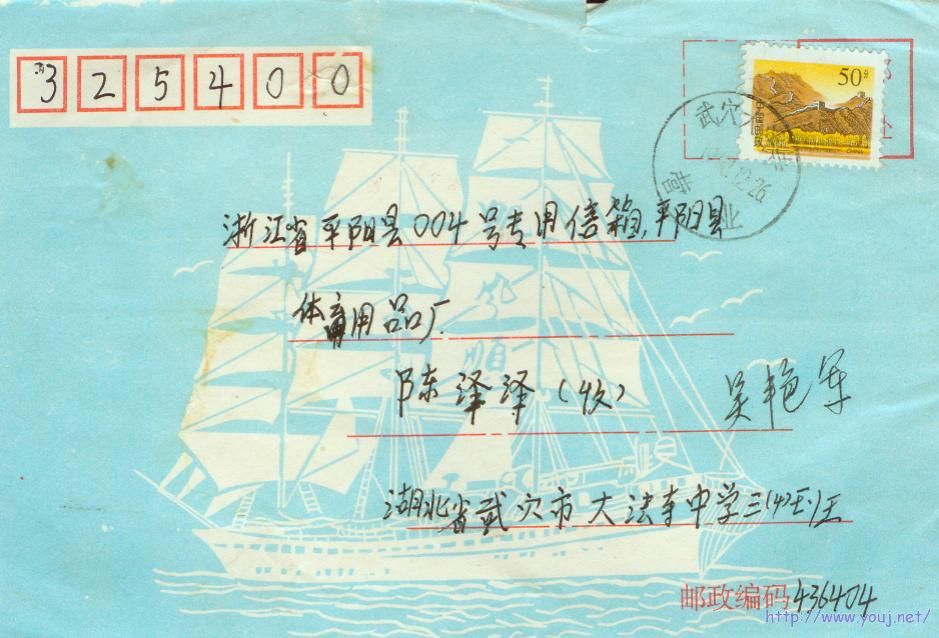 325400
50分
CHINA
浙江省平阳县004号专用信箱,平阳县
体育用品厂.
陈泽泽(收)
吴艳军
湖北省武穴市大法寺中学三(4)
邮政编码436404
http://www.youj.net/